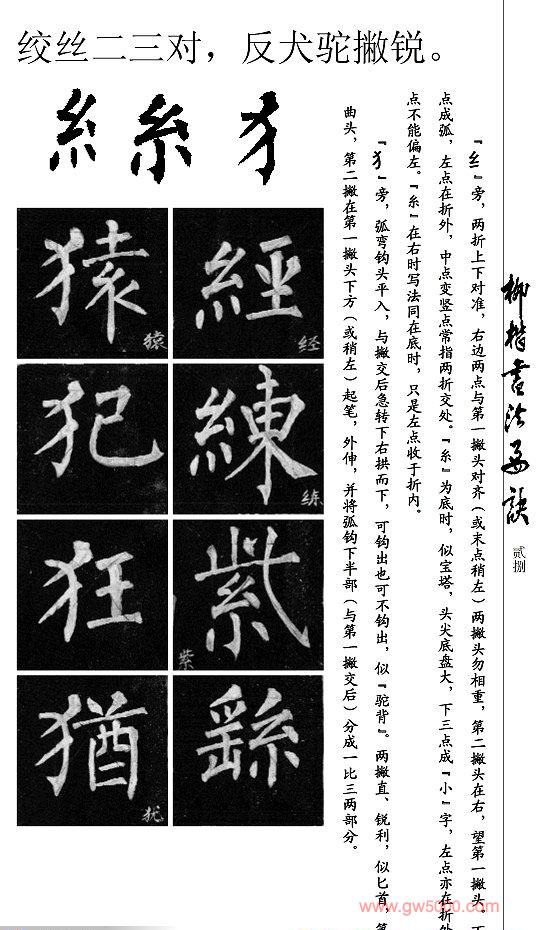 绞丝二三对，反犬驼撇锐。
糹 糸 犭
柳楷書法要訣
贰捌
『纟』旁，两折上下对准，右边两点与第一撇头对齐（或末点稍左）两撇头勿相重，第二撇头在右，望第一撇头，
点成弧，左点在折外，中点变竖点常指两折交处。『糸』为底时，似宝塔，头尖底盘大，下三点成『小』字，左点亦在折外
点不能偏左。『糸』在右时写法同在底时，只是左点收于折内。
『犭』旁，弧弯钩头平入，与撇交后急转下右拱而下，可钩出也可不钩出，似『驼背』。两撇直、锐利，似匕首，第
曲头，第二撇在第一撇头下方（或稍左）起笔，外伸，并将弧钩下半部（与第一撇交后）分成一比三两部分。
經 经
練 练
紫 紫
繇
猿 猿
犯
狂
猶 犹
www.gw5000.com